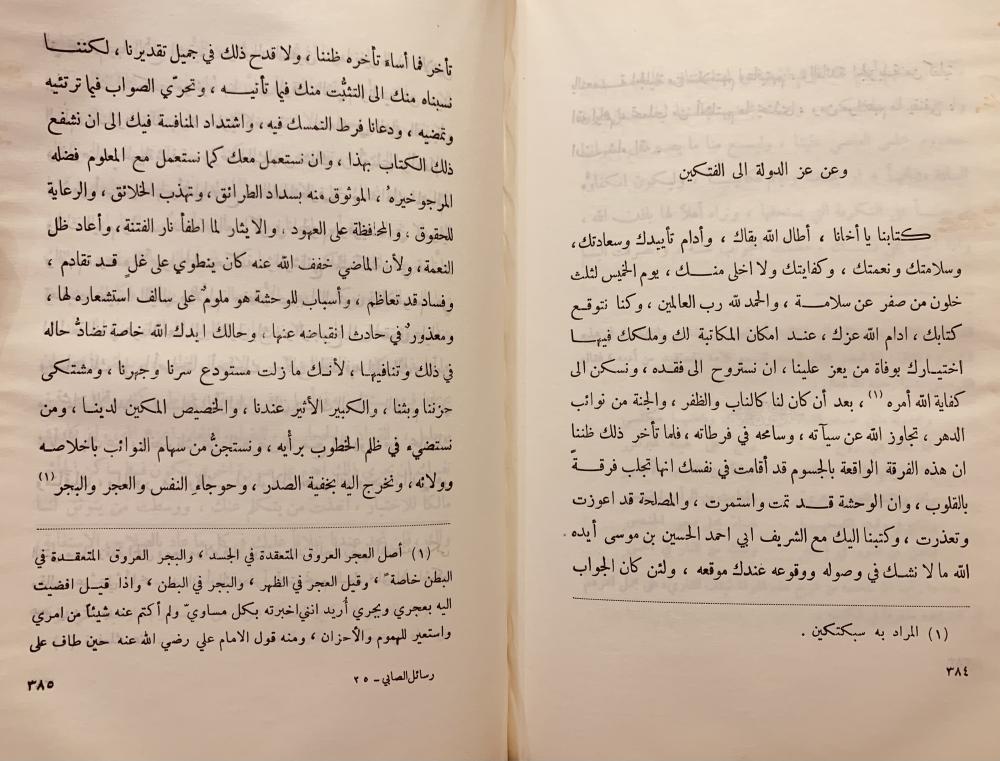 وعن عز الدولة الى الفتكين
كتابنا يا أخانا ، أطال الله بقاك ، وأدام تأييدك وسعادتك،
وسلامتك ونعمتك ، وكفايتك ولا اخلى منـك ، يوم الخميس لثلث
خلون من صفر عن سلامـة ، والحمد لله رب العالمين ، وكنا نتوقع
كتابك ، ادام الله عزك ، عنـد امكان المكاتبة لك وملكك فيهـا
اختيـارك بوفاة من يعز علينا ، ان نستروح الى فقـده ، ونسكن الى
كفاية الله أمره (١) ، بعد أن كان لنا كالناب والظفر ، والجنة من نوائب
الدهر ، تجاوز الله عن سيآته ، وسامحه في فرطاته ، فلما تأخر ذلك ظننا
ان هذه الفرقة الواقعة بالجسوم قد أقامت في نفسك انها تجلب فرقـةً
بالقلوب ، وان الوحشة قـد تمت واستمرت ، والمصلحة قد اعوزت
وتعذرت ، وكتبنا اليك مع الشريف ابي احمد الحسين بن موسى أيده
الله ما لا نشـك في وصوله ووقوعه عندك موقعه ، ولئن كان الجواب
(١) المراد به سبكتكين .
٣٨٤
تأخر فما أساءَ تأخره ظننا ، ولا قدح ذلك في جميل تقديرنا ، لكننـا
نسبناه منك الى التثبُّت منك فيما تأتيـه ، وتحرّي الصواب فيما ترتئيه
وتمضيه ، ودعانا فرط التمسك فيه، واشتداد المنافسة فيك الى ان نشفع
ذلك الكتاب بهذا ، وان نستعمل معك كما نستعمل مع المعلوم فضله
المرجو خيرهُ ، الموثوق منه بسداد الطرائق ، وتهذب الخلائق ، والرعاية
للحقوق ، والمحافظة على العهود ، والايثار لما اطفأ نار الفتنة، وأعاد ظل
النعمة، ولأن الماضي خفف الله عنه كان ينطوي على غلٍ قـد تقادم ،
وفساد قد تعاظم ، وأسباب للوحشة هو ملومٌ على سالف استشعاره لها ،
ومعذورٌ في حادث انقباضه عنها ، وحالك ايدك الله خاصة تضادُّ حاله
في ذلك وتنافيهـا ، لأنـك ما زلت مستودع سرنا وجهرنا ، ومشتـكى
حزننا وبثنا ، والكبير الأثير عندنا ، والخصيص المكين لدينـا ، ومن
نستضيء في ظلم الخطوب برأيه ، ونستجنُّ من سهام النوائب باخلاصـه
وولائه، ونخرج اليه بخفية الصدر ، وحوجاءِ النفس والعجر والبجر(١)
(١) أصل العجر العروق المتعقدة في الجسد ، والبجر العروق المتعقـدة في
البطن خاصة ً ، وقيل العجر في الظهر ، والبجر في البطن ، واذا قيـل افضيت
اليه بعجري وبجري أُريد انني اخبرته بـكل مساويّ ولم أكتم عنه شيئاً من امري
واستعير للهموم والأحزان ، ومنه قول الامام علي رضي الله عنه حين طاف على
رسائل الصابي ـ ٢٥
٣٨٥